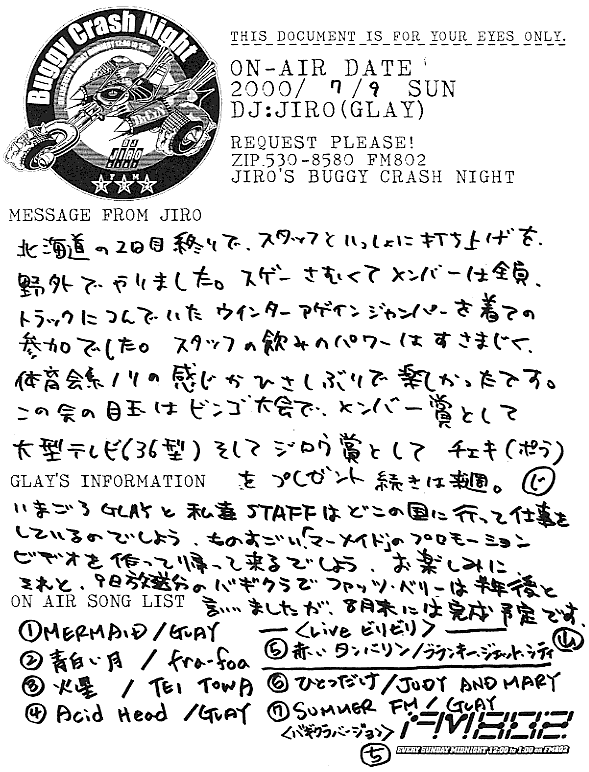 Buggy Crash Night
DJ
JIRO
THIS DOCUMENT IS FOR YOUR EYES ONLY.
ON-AIR DATE
2000/ 7/9 SUN
DJ:JIRO(GLAY)
REQUEST PLEASE!
ZIP.530-8580 FM802
JIRO'S BUGGY CRASH NIGHT
MESSAGE FROM JIRO
北海道の2日目終りで、スタッフといっしょに打ち上げを、
野外でやりました。スゲーさむくてメンバーは全員、
トラックにつんでいたウインターアゲインジャンパーを着ての
参加でした。スタッフの飲みのパワーはすさまじく、
体育会系ノリの感じがひさしぶりで楽しかったです。
この会の目玉はビンゴ大会で、メンバー賞として
大型テレビ(36型)そしてジロウ賞としてチェキ(ポラ)
をプレゼント 続きは来週。(じ)
GLAY'S INFORMATION
いまごろGLAYと私達STAFFはどこの国に行って仕事を
しているのでしょう、ものすごい「マーメイド」のプロモーション
ビデオを作って帰って来るでしょう、お楽しみに、
それと、9日放送分のバギクラでファッツ・ベリーは半年後と
言いましたが、8月末には完成予定です、
ON AIR SONG LIST
①MERMAID/GLAY
②青白い月 / fra-foa
③火星 / TEI TOWA
④Acid Head /GLAY
〈Live ビリビリ〉
⑤赤いタンバリン/ブランキー・ジェット・シティ
⑥ひとつだけ/JUDY AND MARY
⑦SUMMER FM/GLAY
〈バギクラバージョン〉
FM802
EVERY SUNDAY MIDNIGHT 12:00 to 1:00 on FM802